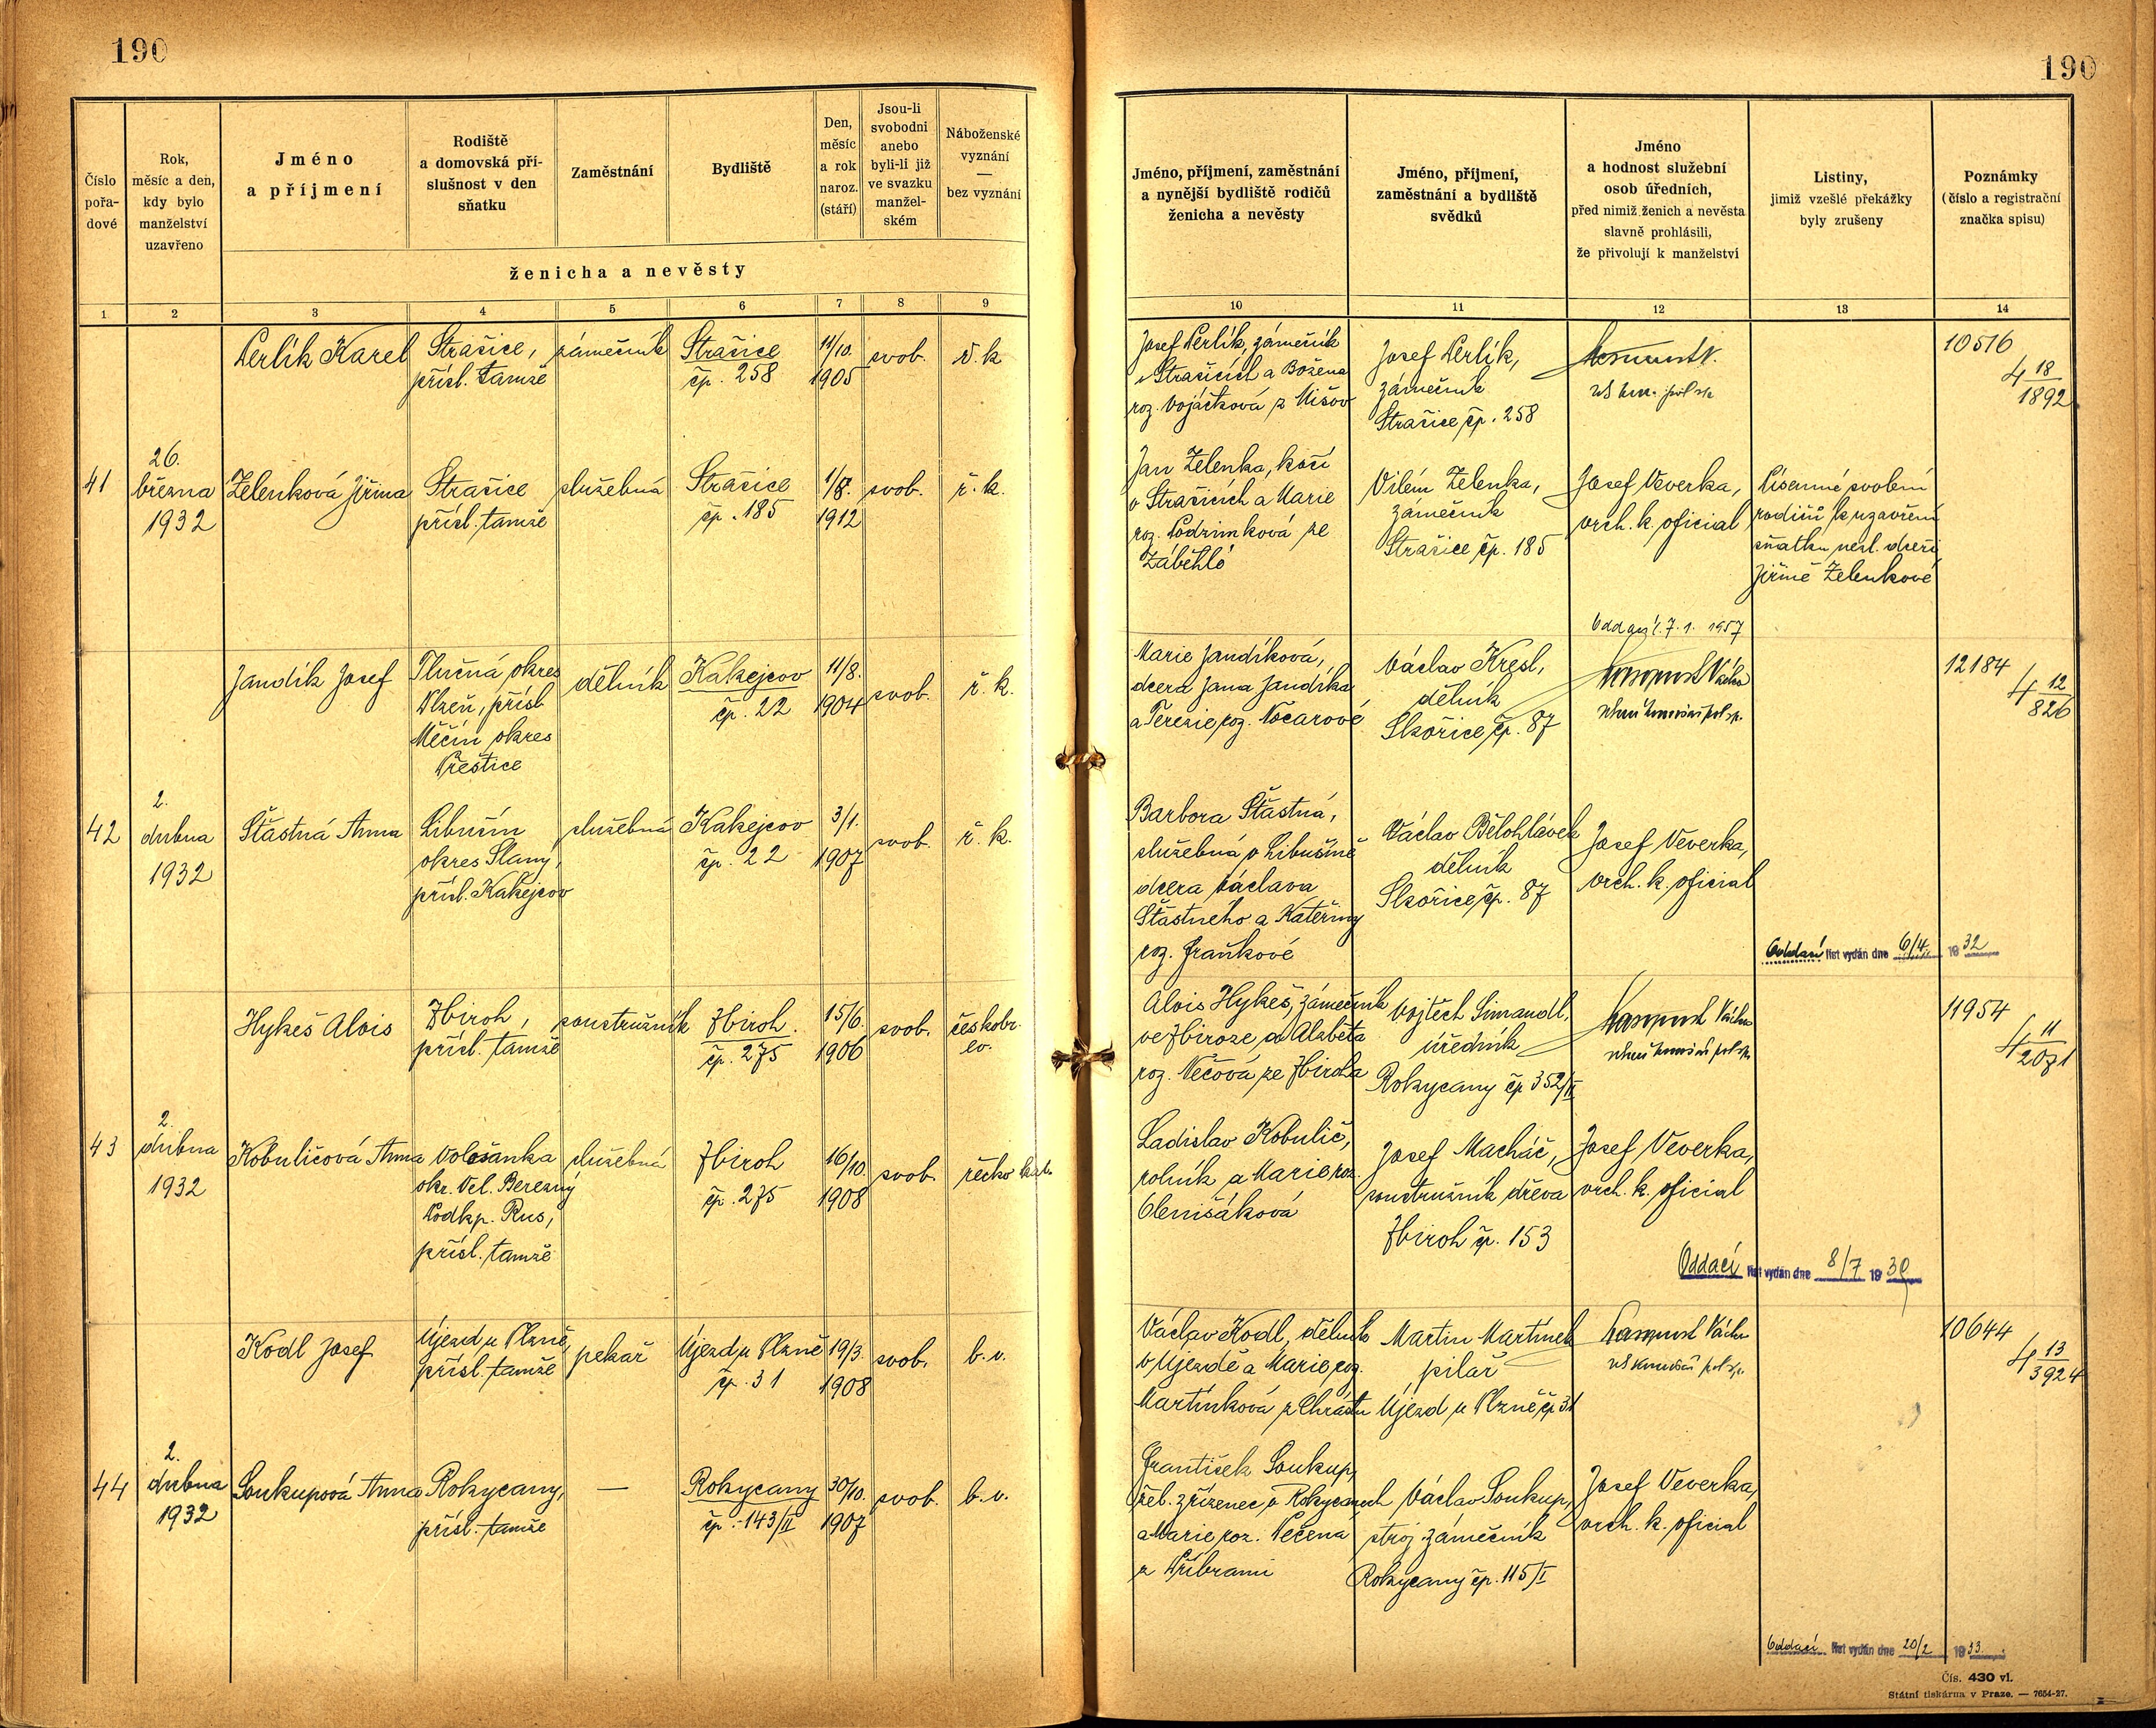 190
190
Číslo pořa-dové
Rok, měsíc a den, kdy bylo manželství uzavřeno
Jméno a příjmení
Rodiště a domovská pří-slušnost v den sňatku
Zaměstnání
Bydliště
Den, měsíc a rok naroz. (stáří)
Jsou-li svobodni anebo byli-li již ve svazku manžel-ském
Náboženské vyznání — bez vyznání
ženicha a nevěsty
Jméno, příjmení, zaměstnání a nynější bydliště rodičů ženicha a nevěsty
Jméno, příjmení, zaměstnání a bydliště svědků
Jméno a hodnost služební osob úředních, před nimiž ženich a nevěsta slavně prohlásili, že přivolují k manželství
Listiny, jimiž vzešlé překážky byly zrušeny
Poznámky (číslo a registrační značka spisu)
1 2 3 4 5 6 7 8 9 10 11 12 13 14
Perlík Karel
Strašice,
přísl. tamže
zámečník
Strašice
čp. 258
11/10.
1905
svob.
ř. k
Josef Perlík, zámečník
v Strašicích a Božena
roz. Vojáčková z Mišov
Josef Perlík,
zámečník
Strašice čp. 258
10516
4 18/1892
41
26.
března
1932
Zelenková Jiřina
Strašice
přísl. tamže
služebná
Strašice
čp. 185
1/8.
1912
svob.
ř. k.
Jan Zelenka, kočí
v Strašicích a Marie
roz. Podzimková ze
Záběhlé
Vilém Zelenka,
zámečník
Strašice čp. 185
Josef Veverka,
vrch. k. oficial
Písemné svolení
rodičů k uzavření
sňatku nezl. dceři
Jiřině Zelenkové
Oddací l. 7. 1. 1957
Jandík Josef
Tlučná okres
Plzeň, přísl.
Měčín okres
Přeštice
dělník
Kakejcov
čp. 22
11/8.
1904
svob.
ř. k.
Marie Jandíková,
dcera Jana Jandíka
a Terezie roz. Nocarové
Václav Kresl,
dělník
Skořice čp. 87
12184
4 12/826
42
2.
dubna
1932
Šťastná Anna
Libušín
okres Slaný,
přísl. Kakejcov
služebná
Kakejcov
čp. 22
3/1.
1907
svob.
ř. k.
Barbora Šťastná,
služebná v Libušíně
dcera Václava
Šťastného a Kateřiny
roz. Fraňkové
Václav Bělohlávek
dělník
Skořice čp. 87
Josef Veverka,
vrch. k. oficial
Oddací list vydán dne 6/4. 1932
Hykeš Alois
Zbiroh,
přísl. tamže
soustružník
Zbiroh.
čp. 275
15/6.
1906
svob.
českobr.
ev.
Alois Hykeš, zámečník
ve Zbiroze a Alžběta
roz. Nečová ze Zbiroha
Vojtěch Simandl,
úředník
Rokycany čp 352/II
11954
4 11/2071
43
2.
dubna
1932
Kobuličová Anna
Volosanka
okr. Vel. Berezný
Podkp. Rus,
přísl. tamže
služebná
Zbiroh
čp. 275
16/10.
1908
svob.
řecko kat.
Ladislav Kobulič,
rolník a Marie roz.
Olenišáková
Josef Macháč,
soustružník dřeva
Zbiroh čp. 153
Josef Veverka,
vrch. k. oficial
Oddací list vydán dne 8/7 1939
Kodl Josef
Újezd u Plzně,
přísl. tamže
pekař
Újezd u Plzně
čp. 31
19/3.
1908
svob.
b. v.
Václav Kodl, dělník
v Újezdě a Marie roz.
Martínková z Chrástu
Martin Martínek
pilař
Újezd u Plzně čp 31
10644
4 13/3924
44
2.
dubna
1932
Soukupová Anna
Rokycany,
přísl. tamže
—
Rokycany
čp. 143/II
30/10.
1907
svob.
b. v.
František Soukup,
žel. zřízenec v Rokycanech
a Marie roz. Pečená
z Příbrami
Václav Soukup,
stroj. zámečník
Rokycany čp. 115/I
Josef Veverka,
vrch. k. oficial
Oddací list vydán dne 20/2 1933.
Čís. 430 vl.
Státní tiskárna v Praze. — 7654-27.